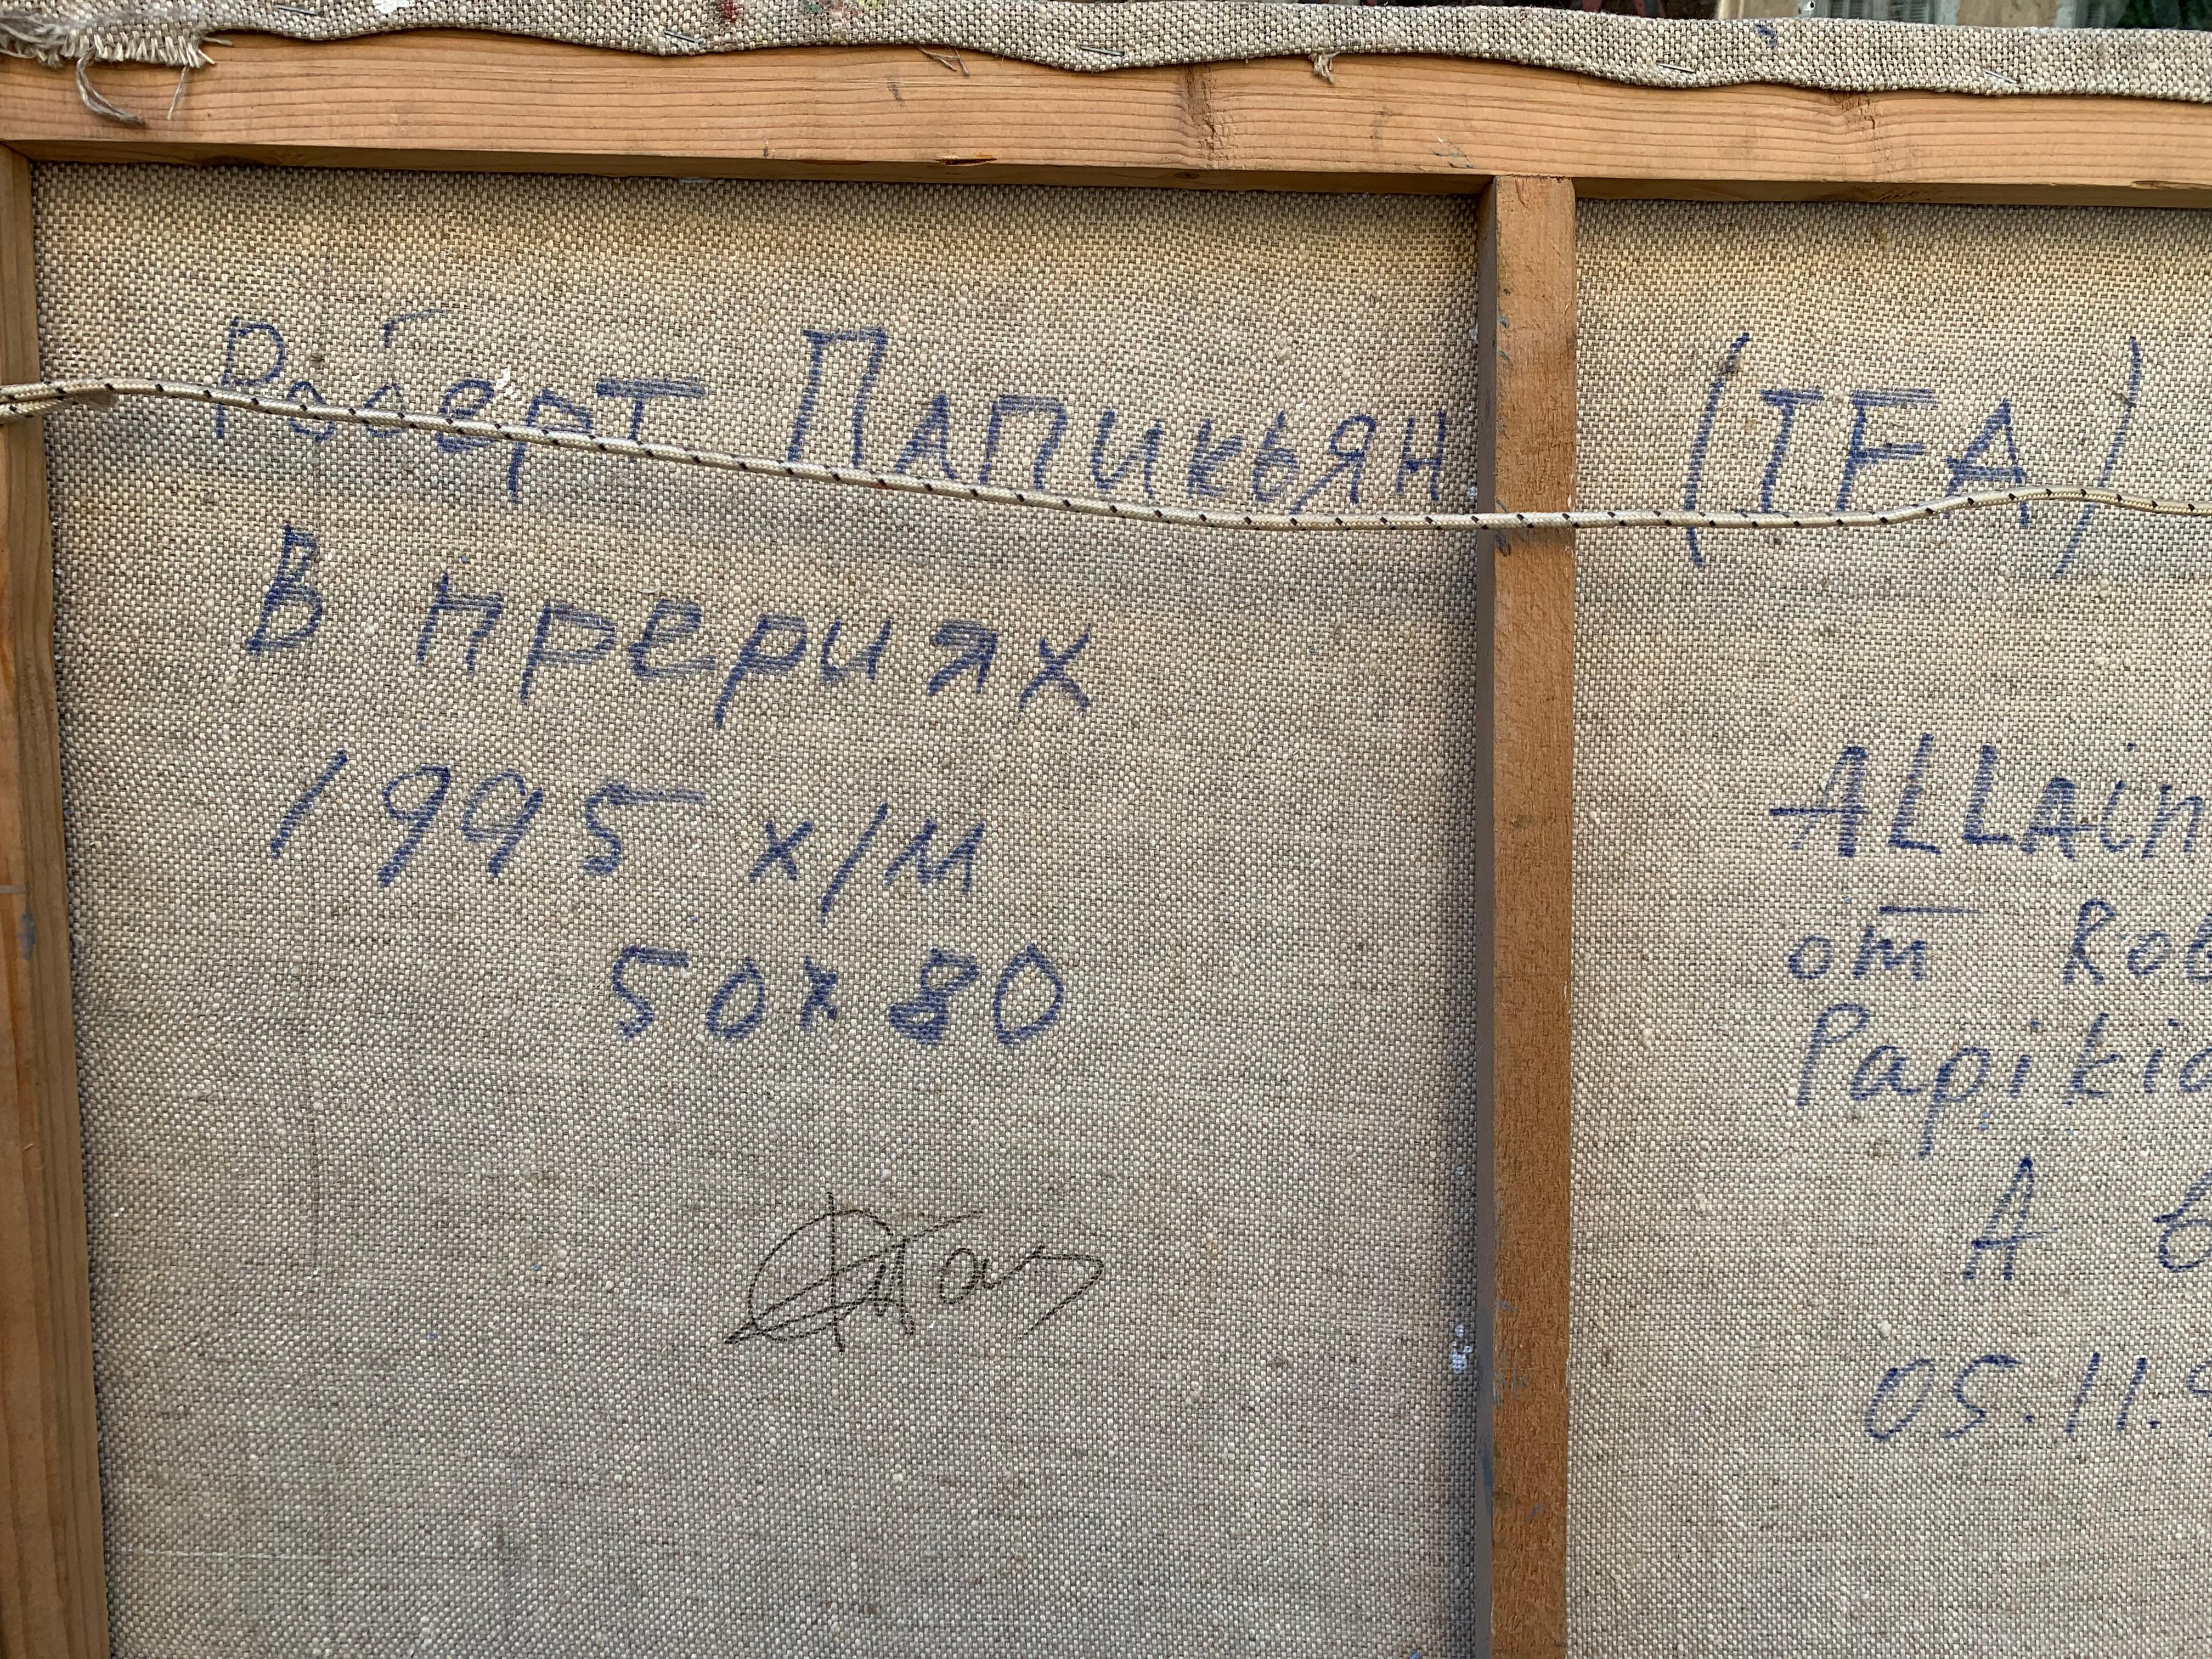 Роберт Папикьян (IFA)
В прериях
1995 х/м
50х80
ALLain
от Rob
Papikia
А в
05.11.9